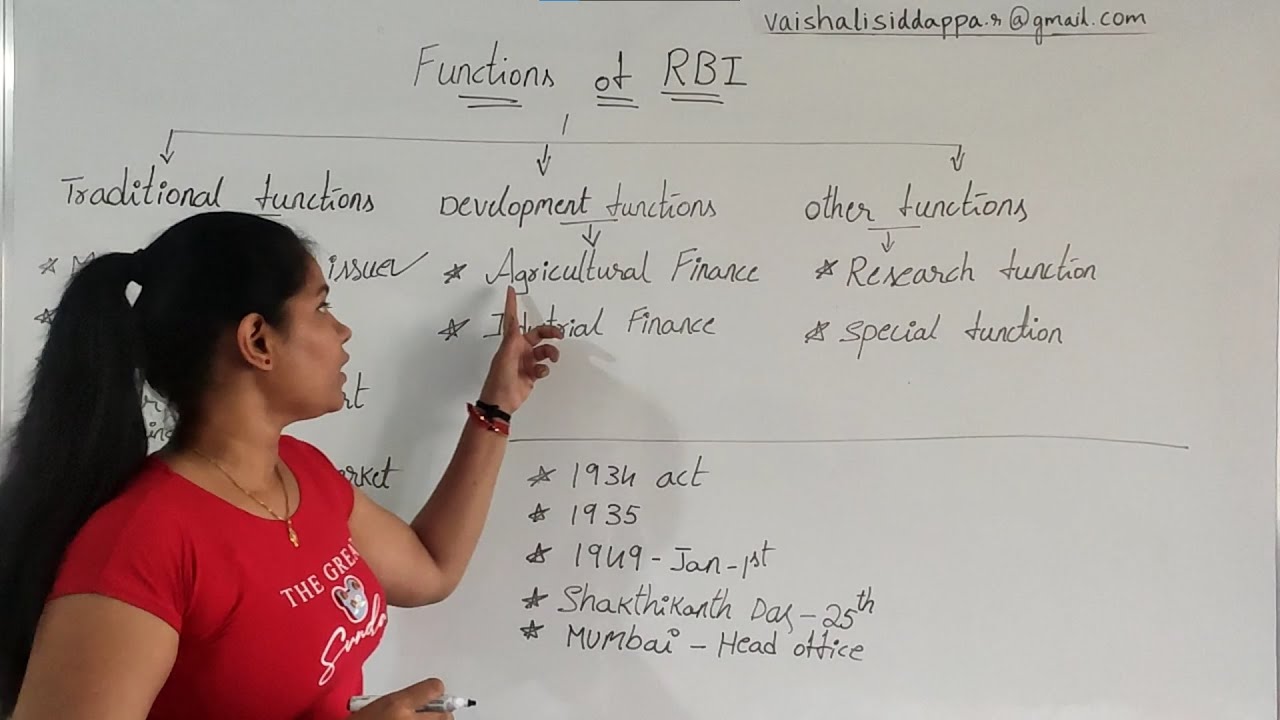 vaishalisiddappa.r@gmail.com
Functions of RBI
Traditional functions
issuer
rt
arket
Development functions
* Agricultural Finance
* Industrial Finance
Other functions
* Research function
* Special function
* 1934 act
* 1935
* 1949 - Jan - 1st
* Shakthikanth Das - 25th
* Mumbai - Head office
THE GREAT
Sunda